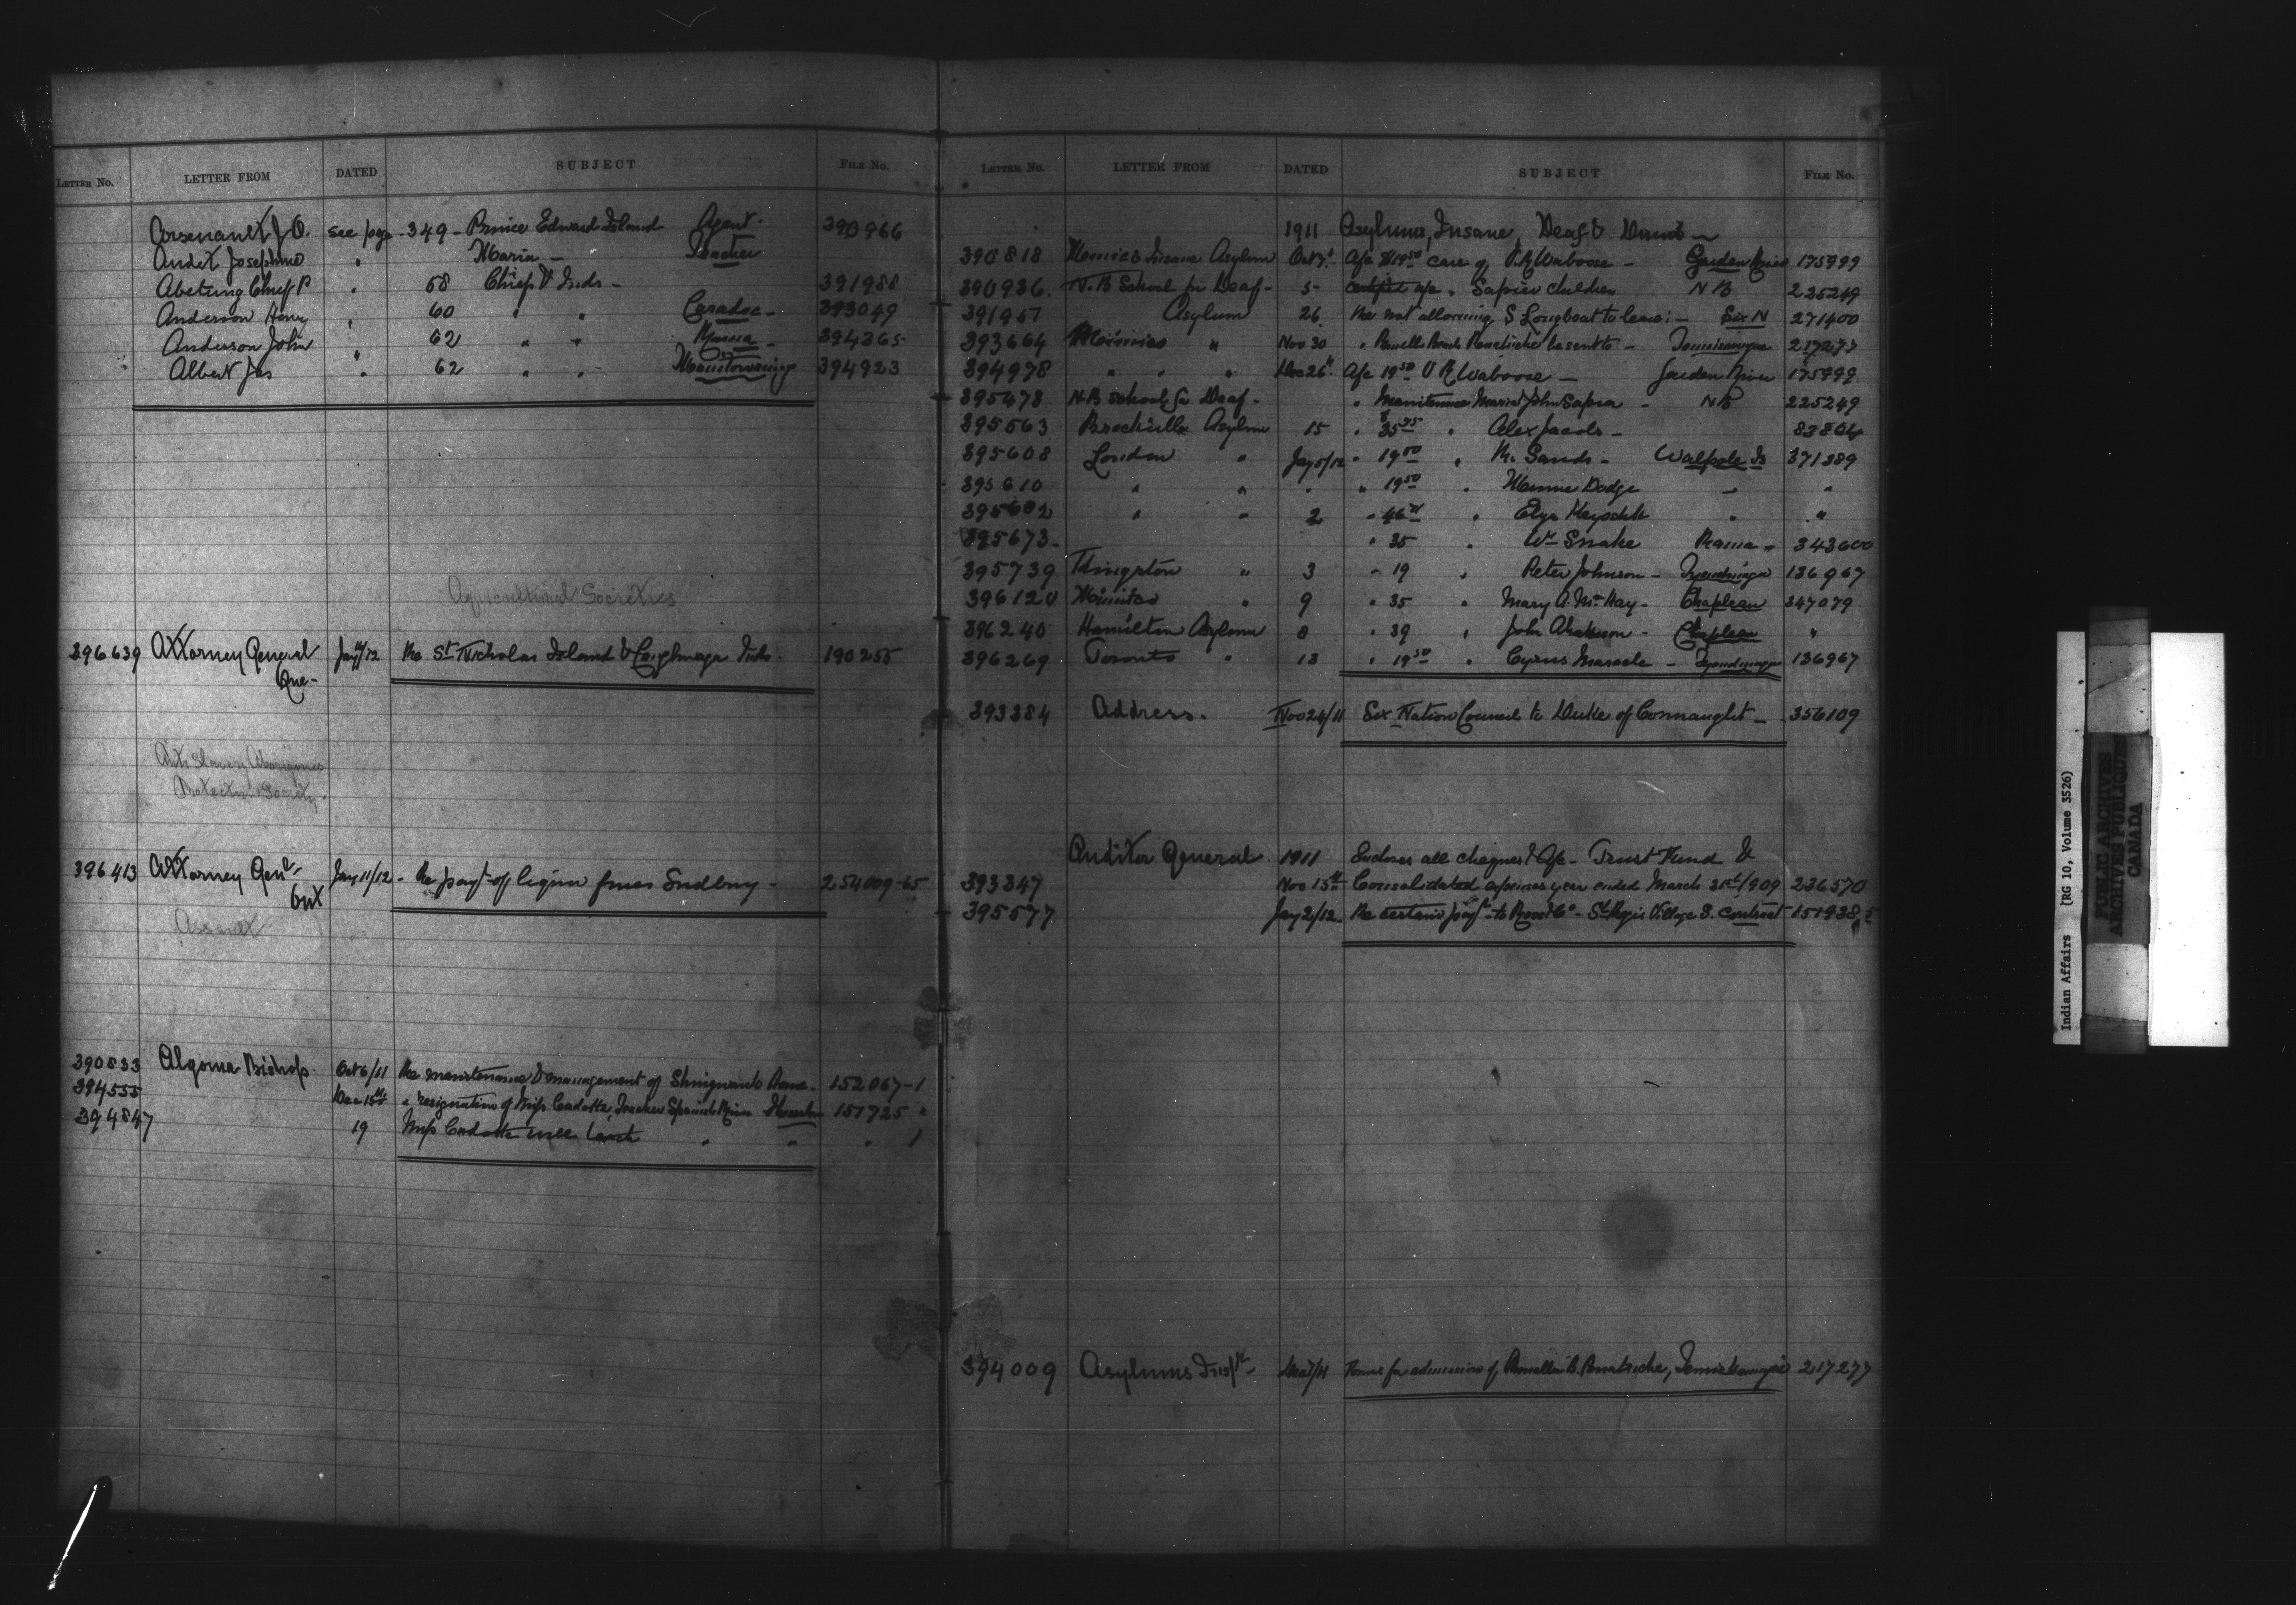 LETTER NO. LETTER FROM DATED SUBJECT FILE NO.
Arsenault J O. see page 349 - Prince Edward Island Agent - 390966
Audet Josephine " Maria - Teacher
Abetung Chief P " 58 Chief & Inds - 391988
Anderson Henry " 60 " " Caradoc - 393049
Anderson John 62 " " Rama - 394265
Albert Jas " 62 " " Manitowaning 394923
Agricultural Societies
396639 Attorney General Jany /12 Re St Nicholas Island & Caughnaga Inds. 190255
Que -
Anti Slavery Aborigines
Protection Society.
396413 Attorney Genl - Jany 11/12 - Re payt of liquor fines Sudbury - 254009-65
Ont
Assault
390833 Algoma Bishop. Oct 6/11 Re maintenance & management of Shingwauk Home. 152067-1
394555 Dec 15th " resignation of Miss Cadotte, Teacher Spanish River 151725 "
394847 19 Miss Cadotte will teach " " " 1
LETTER NO. LETTER FROM DATED SUBJECT FILE NO.
1911 Asylums, Insane, Deaf & Dumb -
390818 Mimico Insane Asylum Oct Afc $19.50 care of Waboose - Garden River 175999
390936. N.B School for Deaf - 5 - afc " Sapier children N B 225249
391957 Asylum 26 Re not allowing S Longboat to leave : - Six N 271400
393664 Mimico " Nov 30 " be sent to - Temiscamingue 217277
394978 " " " Dec 26" Afc 19.50 Waboose - Garden River 175999
395478 N.B School for Deaf - " Maintenance John Sapier - N B 225249
395563 Brockville Asylum 15 " " Alex Jacobs - 83864
395608 London " Jany 5/12 " 19.50 " Sands - Walpole Is 371389
395610 " " " " 19.50 " Dodge " "
" " 2 " " " "
395673 - " 35 " Wm Snake Rama " 343600
395739 Kingston " 3 " 19 " Peter Johnson - Tyendinaga 136967
396120 Mimico " 9 " 35 " Mary A. McKay - Chapleau 347079
396240 Hamilton Asylum 8 " 39 " John - Chapleau "
396269 Toronto " 13 " 19.50 " Cyrus Maracle - Tyendinaga 136967
393384 Address. Nov 24/11 Six Nation Council to Duke of Connaught - 356109
Auditor General. 1911 Encloses all cheques & Afc - Trust Fund &
393347 Nov 15th Consolidated expenses year ended March 31st/909 236570
395577 Jany 2/12. Re certain payt - to - St Regis Village I. contract 151938
394009 Asylums Dec 7/11 Forms for admission of, Temiskamingue 217277
Indian Affairs (RG 10, Volume 3526)
PUBLIC ARCHIVES
ARCHIVES PUBLIQUES
CANADA